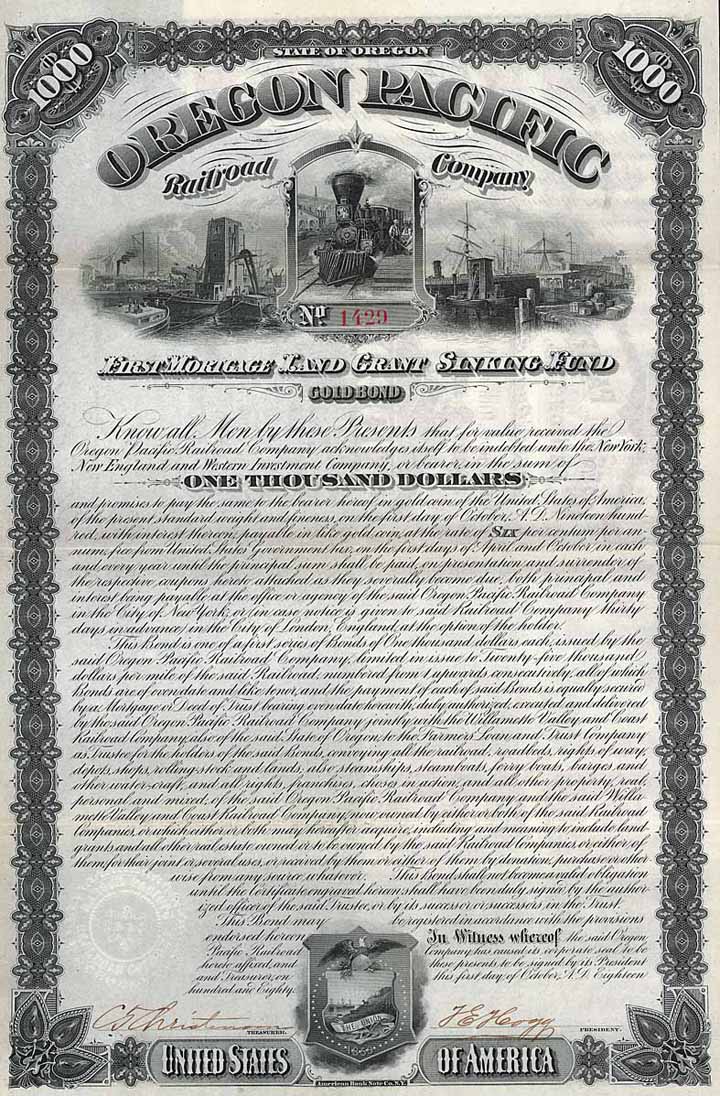 STATE OF OREGON
1000
1000
OREGON PACIFIC
Railroad Company,
No. 1429
FIRST MORTGAGE LAND GRANT SINKING FUND
GOLD BOND
Know all Men by these Presents that for value received the
Oregon Pacific Railroad Company acknowledges itself to be indebted unto the New York,
New England and Western Investment Company, or bearer, in the sum of
ONE THOUSAND DOLLARS
and promises to pay the same to the bearer hereof in gold coin of the United States of America,
of the present standard weight and fineness, on the first day of October, A.D. Nineteen hund
red, with interest thereon, payable in like gold coin, at the rate of Six per centum per an-
num, free from United States Government tax, on the first days of April and October, in each
and every year until the principal sum shall be paid, on presentation and surrender of
the respective coupons hereto attached as they severally become due, both principal and
interest being payable at the office or agency of the said Oregon Pacific Railroad Company
in the City of New York; or (in case notice is given to said Railroad Company thirty
days in advance) in the City of London, England, at the option of the holder.
This Bond is one of a first series of Bonds of One thousand dollars each, issued by the
said Oregon Pacific Railroad Company, limited in issue to Twenty-five thousand
dollars per mile of the said Railroad, numbered from 1 upwards consecutively, all of which
Bonds are of even date and like tenor, and the payment of each of said Bonds is equally secured
by a Mortgage or Deed of Trust bearing even date herewith, duly authorized, executed and delivered
by the said Oregon Pacific Railroad Company jointly with the Willamette Valley and Coast
Railroad Company, also of the said State of Oregon, to the Farmers' Loan and Trust Company
as Trustee for the holders of the said Bonds, conveying all the railroad, roadbeds, rights of way,
depots, shops, rolling stock and lands; also steamships, steamboats, ferry boats, barges and
other water-craft, and all rights, franchises, choses in action, and all other property, real,
personal and mixed, of the said Oregon Pacific Railroad Company and the said Willa-
mette Valley and Coast Railroad Company, now owned by either or both of the said Railroad
Companies, or which either or both may hereafter acquire, including and meaning to include land
grants and all other real estate owned or to be owned by the said Railroad Companies or either of
them, for their joint or several uses, or received by them or either of them by donation, purchase or other
wise from any source whatever. This Bond shall not become a valid obligation
until the Certificate engraved hereon shall have been duly signed by the author-
ized officer of the said Trustee, or by its successor or successors in the Trust.
This Bond may be registered in accordance with the provisions
endorsed hereon. In Witness whereof the said Oregon
Pacific Railroad Company has caused its corporate seal to be
hereto affixed, and these presents to be signed by its President
and Treasurer, on this first day of October, A.D. Eighteen
hundred and Eighty.
THE UNION
1859
TREASURER.
T E Hogg
PRESIDENT.
UNITED STATES OF AMERICA
American Bank Note Co. N.Y.